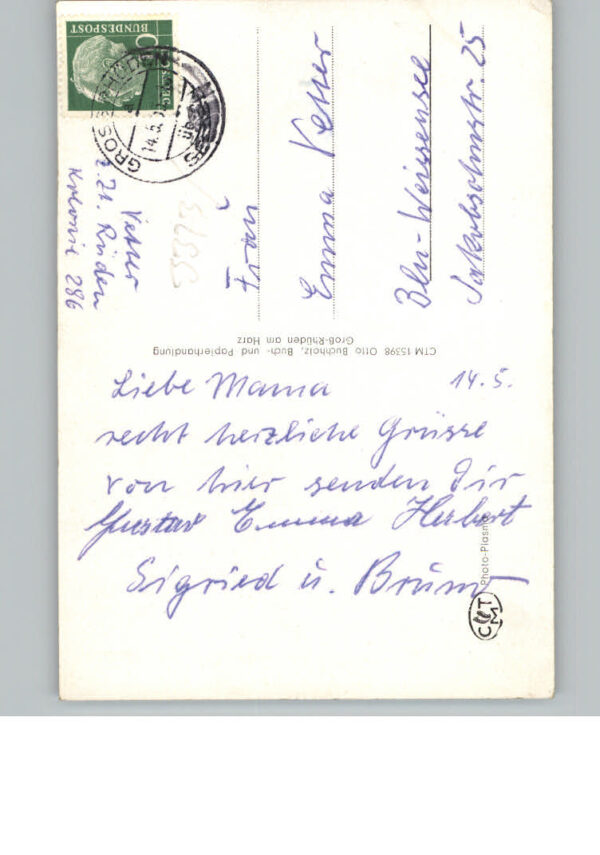 Liebe Mama 14.5.
recht herzliche Grüsse
von hier senden Dir
Gustav Emma Herbert
Sigried u. Bruno
Frau
Emma Vetter
Bln-Weissensee
Jakobsohnstr. 25
Vetter
z.Zt. Rüden
Kolonie 286
CTM 15398 Otto Buchholz, Buch- und Papierhandlung
Groß-Rhüden am Harz
BUNDESPOST
GROSS RHÜDEN
14.5.
Photo
CTM